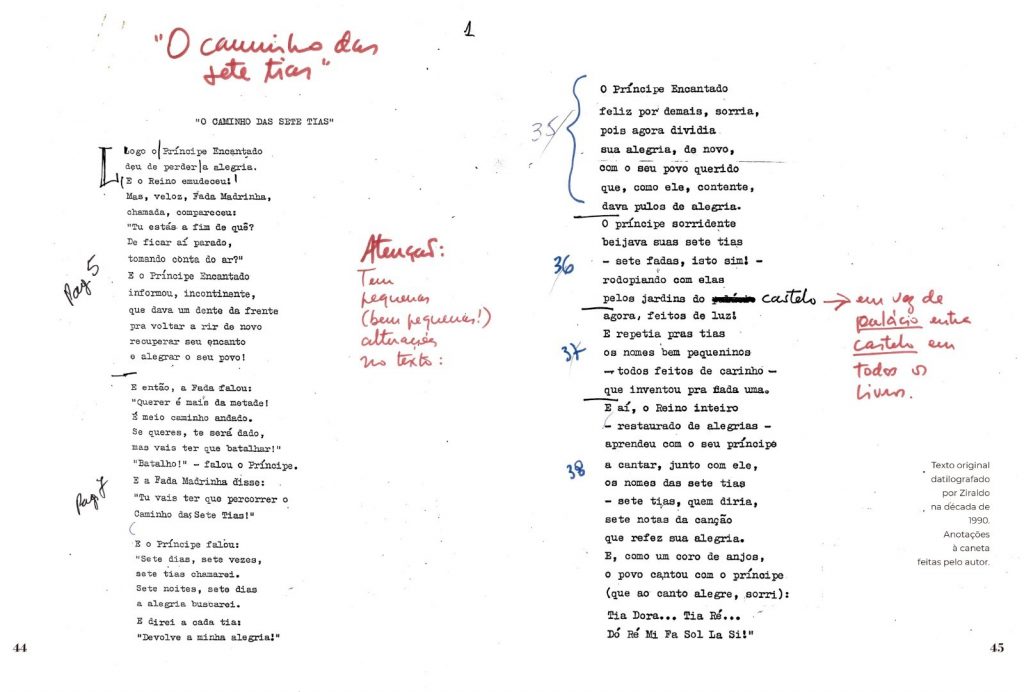 "O caminho das
sete tias"
1
"O CAMINHO DAS SETE TIAS"
Logo o Príncipe Encantado
deu de perder a alegria.
E o Reino emudeceu!
Mas, veloz, Fada Madrinha,
chamada, compareceu:
"Tu estás a fim de quê?
De ficar aí parado,
tomando conta do ar?"
E o Príncipe Encantado
informou, incontinente,
que dava um dente da frente
pra voltar a rir de novo
recuperar seu encanto
e alegrar o seu povo!
Pag 5
E então, a Fada falou:
"Querer é mais da metade!
É meio caminho andado.
Se queres, te será dado,
mas vais ter que batalhar!"
"Batalho!" - falou o Príncipe.
E a Fada Madrinha disse:
"Tu vais ter que percorrer o
Caminho das Sete Tias!"
Pag 7
E o Príncipe falou:
"Sete dias, sete vezes,
sete tias chamarei.
Sete noites, sete dias
a alegria buscarei.
E direi a cada tia:
"Devolve a minha alegria!"
Atenção:
Tem
pequenas
(bem pequenas!)
alterações
no texto:
44
35
O Príncipe Encantado
feliz por demais, sorria,
pois agora dividia
sua alegria, de novo,
com o seu povo querido
que, como ele, contente,
dava pulos de alegria.
O príncipe sorridente
beijava suas sete tias
36
- sete fadas, isto sim! -
rodopiando com elas
pelos jardins do castelo
agora, feitos de luz!
em vez de
palácio entra
castelo em
todos os
livros.
E repetia pras tias
37
os nomes bem pequeninos
- todos feitos de carinho -
que inventou pra cada uma.
E aí, o Reino inteiro
- restaurado de alegrias -
aprendeu com o seu príncipe
38
a cantar, junto com ele,
os nomes das sete tias
- sete tias, quem diria,
sete notas da canção
que refez sua alegria.
E, como um coro de anjos,
o povo cantou com o príncipe
(que ao canto alegre, sorri):
Tia Dora... Tia Ré...
Dó Ré Mi Fa Sol La Si!"
Texto original
datilografado
por Ziraldo
na década de
1990.
Anotações
à caneta
feitas pelo autor.
45